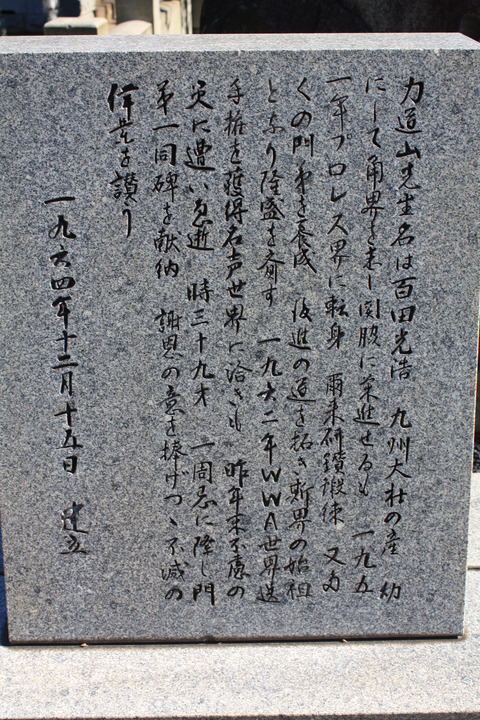 力道山先生名は百田光浩 九州大村の産 幼
にして角界を志し関脇に栄進せるも 一九五
一年プロレス界に転身 爾来研鑽鍛練 又多
くの門弟を養成 後進の道を拓き斯界の始祖
となり隆盛を齎す 一九六二年WWA世界選
手権を獲得名声世界に洽きも 昨年末不慮の
災に遭い急逝 時三十九才 一周忌に際し門
弟一同碑を献納 謝恩の意を捧げつゝ不滅の
偉業を讃う
一九六四年十二月十五日 建立